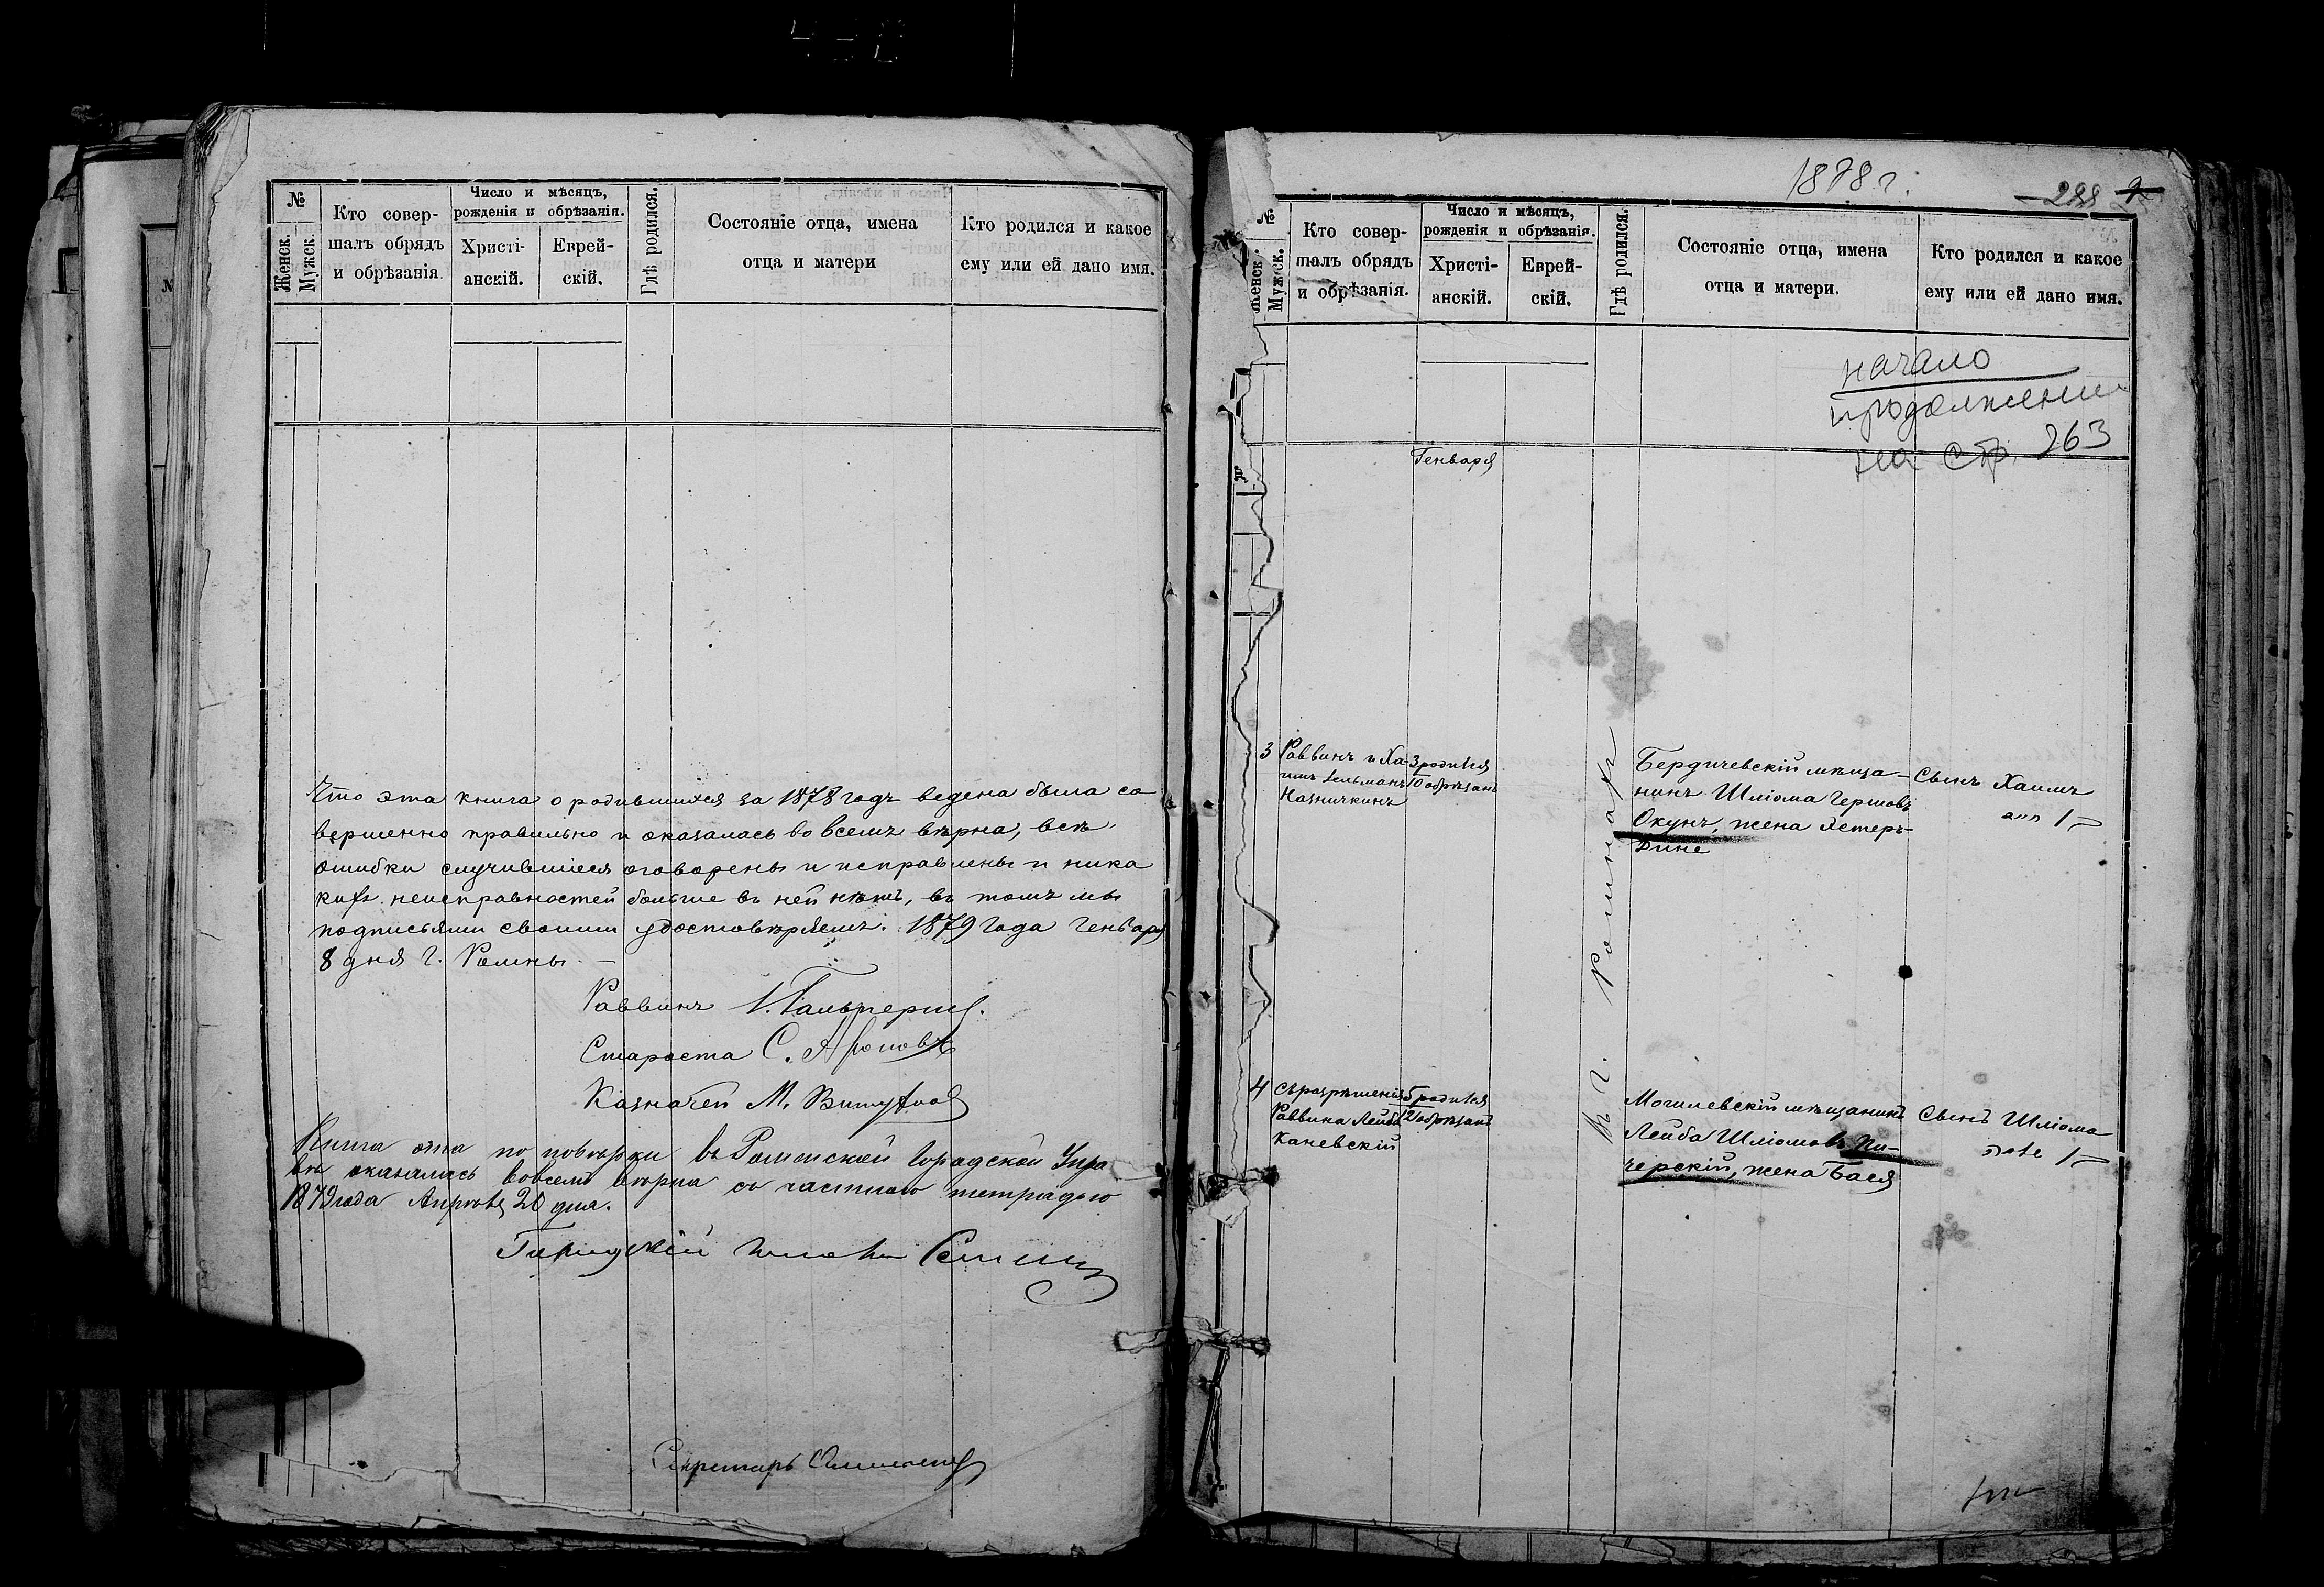 №
Женск.
Мужск.
Кто совер-
шалъ обрядъ
и обрѣзанія.
Число и мѣсяцъ,
рожденія и обрѣзанія.
Христі-
анскій.
Еврей-
скій.
Гдѣ родился.
Состояніе отца, имена
отца и матери
Кто родился и какое
ему или ей дано имя.
Что эта книга о родившихся за 1878 годъ ведена была со
вершенно правильно и оказалась во всемъ вѣрна, всѣ
ошибки случившіеся оговорены и исправлены и ника
кихъ неисправностей больше въ ней нѣтъ, въ томъ мы
подписями своими удостовѣряемъ. 1879 года Генваря
8 дня г. Ромны.
Раввинъ І. Гальперинъ.
Староста С. Ароновъ
Казначей М.
Книга эта по повѣрки въ Роменской Городской Упра
вѣ оказалась вовсемъ вѣрна съ частною тетрадью
1879 года Апрѣля 20 дня.
Городской Голова
Секретарь
1878 г.
288
№
Женск.
Мужск.
Кто совер-
шалъ обрядъ
и обрѣзанія.
Число и мѣсяцъ,
рожденія и обрѣзанія.
Христі-
анскій.
Еврей-
скій.
Гдѣ родился.
Состояніе отца, имена
отца и матери.
Кто родился и какое
ему или ей дано имя.
начало
продолжение
на стр. 263
Генваря
Въ г. Ромнахъ
3 Раввинъ и Ха-
имъ Зельманъ
Назничкинъ
3 родился
10 обрѣзанъ
Бердичевскій мѣща-
нинъ Шліома Гершовъ
Окунь, жена Эстеръ-
Дине
Сынъ Хаимъ
1
4 Съ разрѣшенія
Раввина Лейба
Каневскій
5 родился
12 обрѣзанъ
Могилевскій мѣщанинъ
Лейба Шліомовъ Пи-
черскій, жена Бася
Сынъ Шліома
1